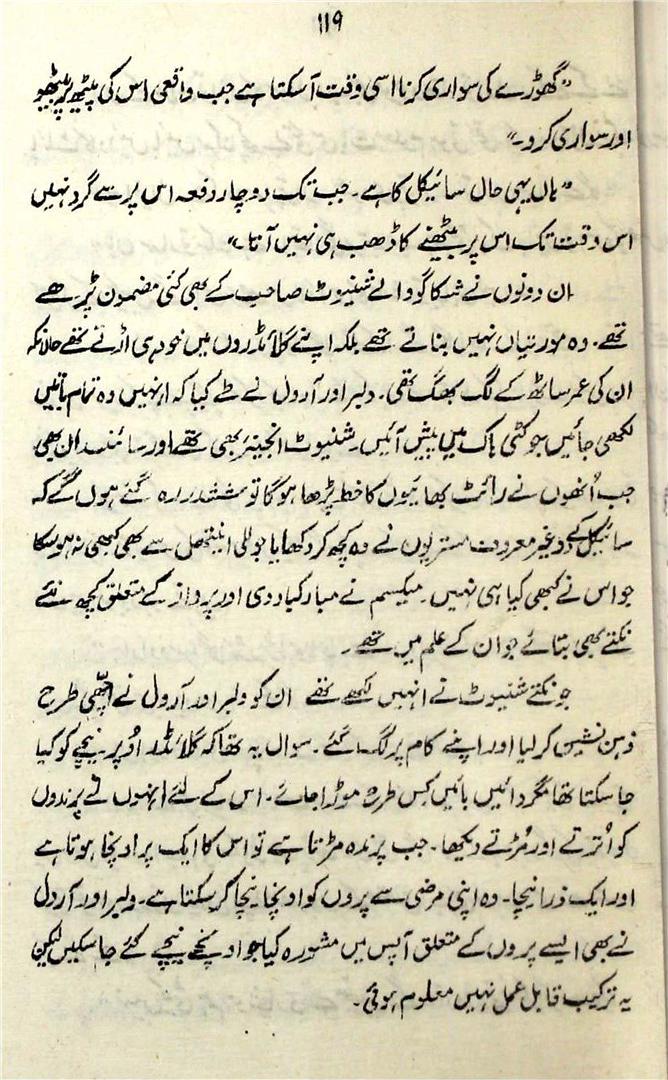 ۱۱۹
”گھوڑے کی سواری کرنا اسی وقت آسکتا ہے جب واقعی اس کی پیٹھ پر بیٹھو
اور سواری کرو۔“
”ہاں یہی حال سائیکل کا ہے۔ جب تک دو چار دفعہ اس پر سے گرد نہیں
اس وقت تک اس پر بیٹھنے کا ڈھب ہی نہیں آتا۔“
ان دونوں نے شکاگو والے شنیوٹ صاحب کے بھی کئی مضمون پڑھے
تھے۔ وہ مورتیاں نہیں بناتے تھے بلکہ اپنے گلائڈروں میں خود ہی اڑتے تھے حالانکہ
ان کی عمر ساٹھ کے لگ بھگ تھی۔ ولبر اور آرول نے طے کیا کہ انہیں وہ تمام باتیں
لکھی جائیں جو کٹی ہاک میں پیش آئیں۔ شنیوٹ انجینئر بھی تھے اور سائنسدان بھی
جب اُنھوں نے رائٹ بھائیوں کا خط پڑھا ہوگا تو ششدر رہ گئے ہوں گے کہ
سائیکل کے دو غیر معروف مستریوں نے وہ کچھ کر دکھایا جو للی اینتھل سے بھی کبھی نہ ہوسکا
جو اس نے کبھی کیا ہی نہیں۔ میکسم نے مبارکباد دی اور پرواز کے متعلق کچھ نئے
نکتے بھی بتائے جو ان کے علم میں تھے۔
جو نکتے شنیوٹ نے انہیں لکھے تھے ان کو ولبر اور آرول نے اچھی طرح
ذہن نشین کر لیا اور اپنے کام پر لگ گئے۔ سوال یہ تھا کہ گلائڈر اوپر نیچے کو کیا
جاسکتا تھا مگر دائیں بائیں کس طرح موڑا جائے۔ اس کے لئے انہوں نے پرندوں
کو اُترتے اور مُڑتے دیکھا۔ جب پرندہ مڑتا ہے تو اس کا ایک پر اونچا ہوتا ہے
اور ایک ذرا نیچا۔ وہ اپنی مرضی سے پروں کو اونچا نیچا کرسکتا ہے۔ ولبر اور آرول
نے بھی ایسے پروں کے متعلق آپس میں مشورہ کیا جو اونچے نیچے کئے جاسکیں لیکن
یہ ترکیب قابل عمل نہیں معلوم ہوئی۔